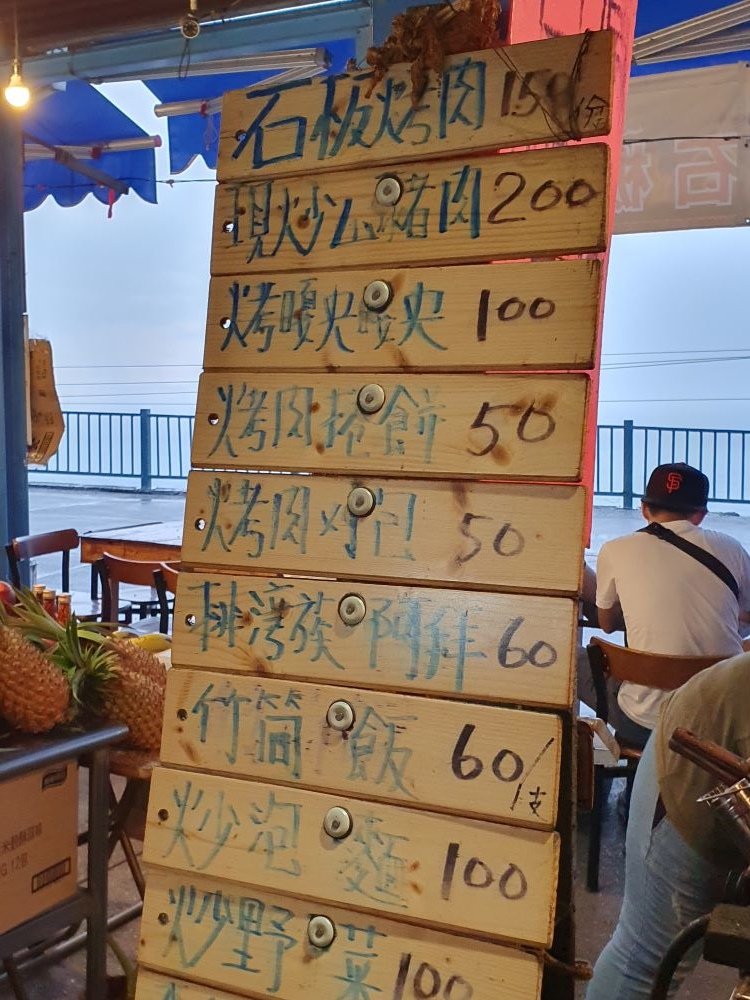 石板烤肉 150/份
現炒山豬肉 200
烤嘎央嘎央 100
烤肉捲餅 50
烤肉刈包 50
排灣族 阿拜 60
竹筒飯 60/支
炒泡麵 100
炒野菜 100
石板
SF